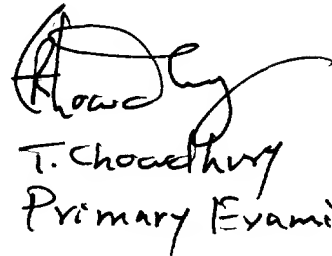 T. Choadhury
Primary Exami